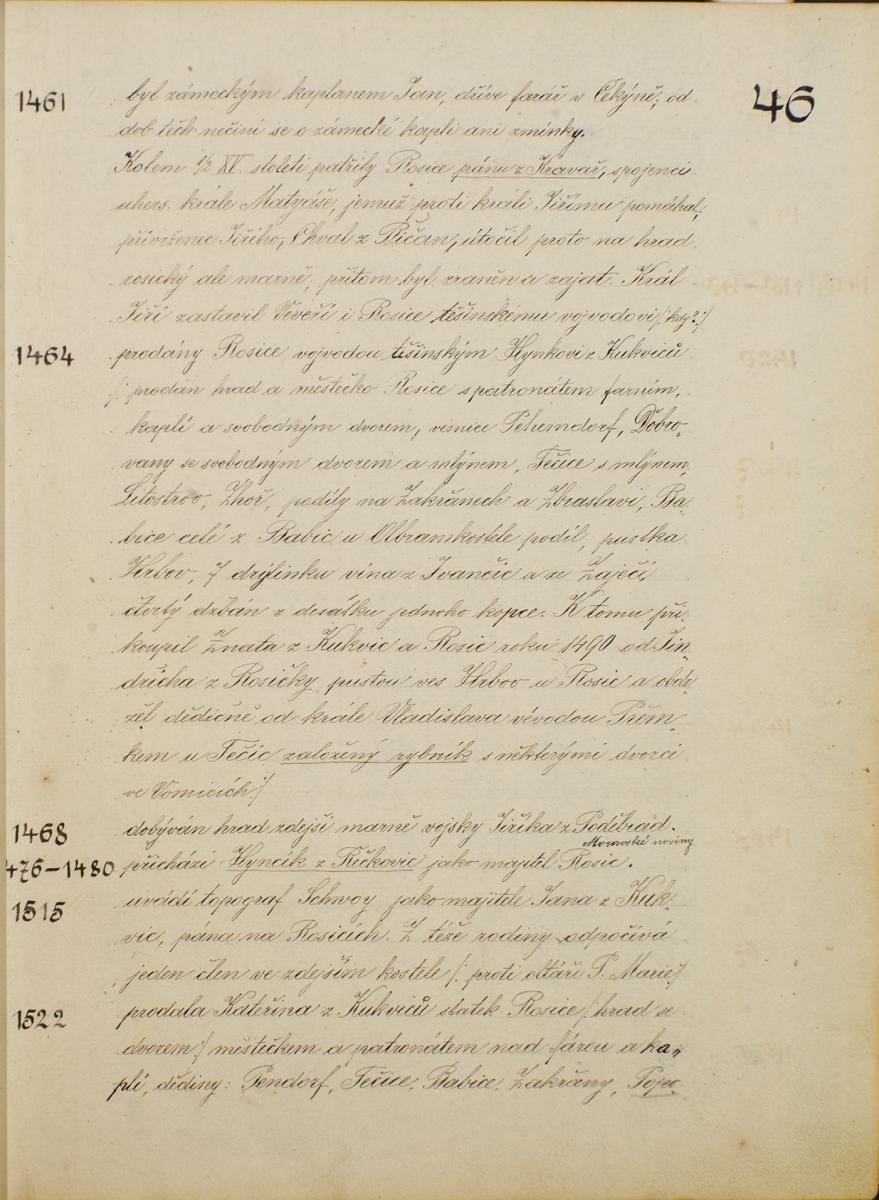 46
1461 byl zámeckým kaplanem Jan, dříve farář v Čekýně; od
dob těch nečiní se o zámecké kapli ani zmínky.
Kolem 1/2 XV. století patřily Rosice pánu z Kravař, spojenci
uhers. krále Matyáše, jemuž proti králi Jiřímu pomáhal;
přívrženec Jiřího, Chval z Říčan, útočil proto na hrad
rosický ale marně; přitom byl zraněn a zajat. Král
Jiří zastavil Veveří i Rosice těšínskému vojvodovi /:kdy?:/
1464 prodány Rosice vojvodou těšínským Hynkovi z Kukviců
/: prodán hrad a městečko Rosice s patronátem farním,
kaplí a svobodným dvorem, vesnice Pehemdorf, Dobro-
vany se svobodným dvorem a mlýnem, Tečice s mlýnem,
Litostrov, Zhoř, podíly na Zakřanech a Zbraslavi, Ba-
bice celé z Babic u Olbramkostele podíl, pustka
Hrbov, 7 drýlinku vína z Ivančic a ze Zaječí
čtvrtý džbán z desátku jednoho kopce. K tomu při-
koupil Znata z Kukvic a Rosic roku 1490 od Jin-
dřicha z Rosičky pustou ves Hrbov u Rosic a obdr-
žel dědičně od krále Vladislava vévodou Přem-
kem u Tečic založený rybník s některými dvorci
ve Vomicích:/
1468 dobýván hrad zdejší marně vojsky Jiříka z Poděbrad.
Moravské noviny
1476-1480 přichází Hynčík z Řečkovic jako majitel Rosic.
1515 uvádí topograf Schwoy jako majitele Jana z Kuk-
vic, pána na Rosicích. Z téže rodiny odpočívá
jeden člen ve zdejším kostele /: proti oltáři P. Marie:/
1522 prodala Kateřina z Kukviců statek Rosice /:hrad se
dvorem:/ městečkem a patronátem nad farou a ka-
plí, dědiny: Pendorf, Tečice, Babice, Zakřany, Popo-